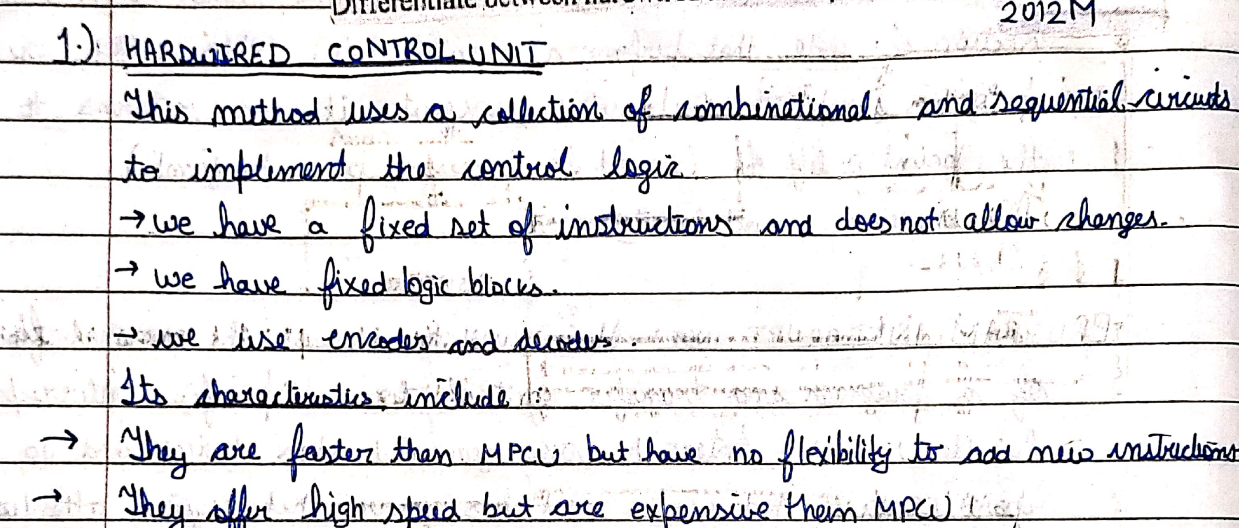 Differentiate between hardwired
2012M
1.) HARDWIRED CONTROL UNIT
This method uses a collection of combinational and sequential circuits
to implement the control logic
→ we have a fixed set of instructions and does not allow changes.
→ we have fixed logic blocks.
→ we use encoders and decoders.
Its characteristics include :
→ They are faster than MPCU but have no flexibility to add new instructions
→ They offer high speed but are expensive them MPCU